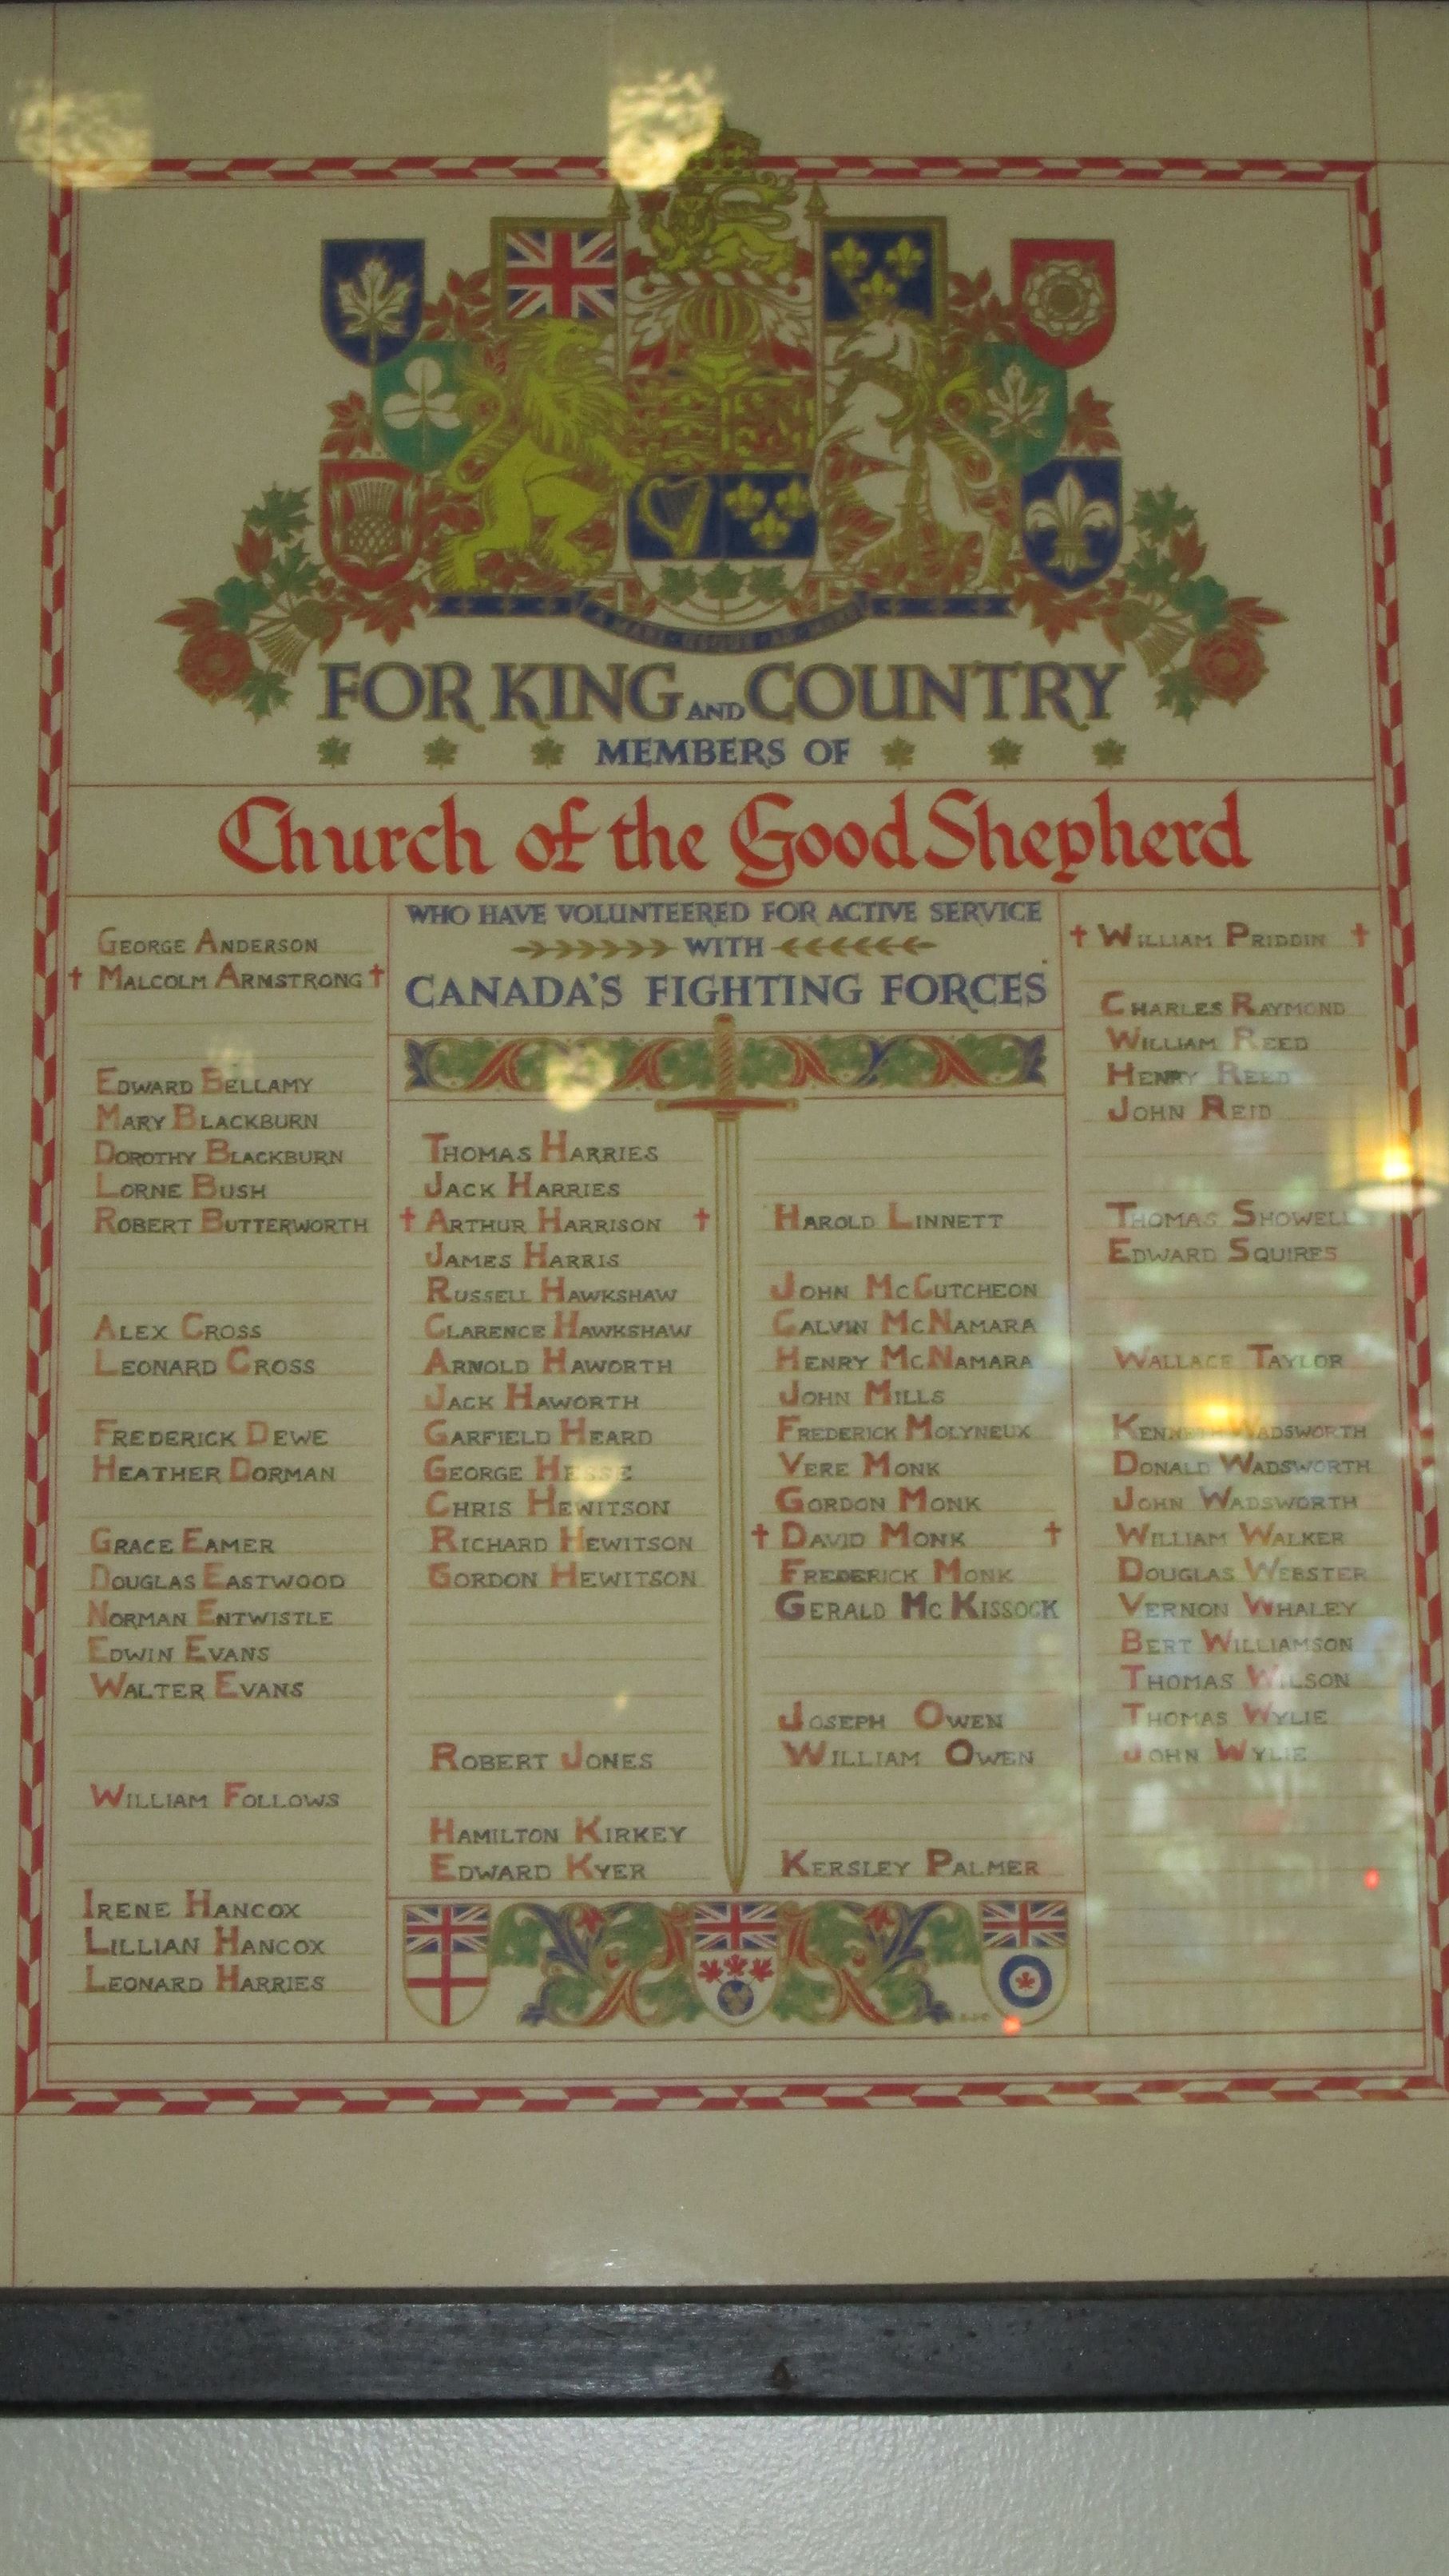 FOR KING AND COUNTRY
MEMBERS OF
Church of the Good Shepherd
WHO HAVE VOLUNTEERED FOR ACTIVE SERVICE
WITH
CANADA'S FIGHTING FORCES
GEORGE ANDERSON
† MALCOLM ARMSTRONG †
EDWARD BELLAMY
MARY BLACKBURN
DOROTHY BLACKBURN
LORNE BUSH
ROBERT BUTTERWORTH
ALEX CROSS
LEONARD CROSS
FREDERICK DEWE
HEATHER DORMAN
GRACE EAMER
DOUGLAS EASTWOOD
NORMAN ENTWISTLE
EDWIN EVANS
WALTER EVANS
WILLIAM FOLLOWS
IRENE HANCOX
LILLIAN HANCOX
LEONARD HARRIES
THOMAS HARRIES
JACK HARRIES
† ARTHUR HARRISON †
JAMES HARRIS
RUSSELL HAWKSHAW
CLARENCE HAWKSHAW
ARNOLD HAWORTH
JACK HAWORTH
GARFIELD HEARD
GEORGE HESSE
CHRIS HEWITSON
RICHARD HEWITSON
GORDON HEWITSON
ROBERT JONES
HAMILTON KIRKEY
EDWARD KYER
HAROLD LINNETT
JOHN McCUTCHEON
CALVIN McNAMARA
HENRY McNAMARA
JOHN MILLS
FREDERICK MOLYNEUX
VERE MONK
GORDON MONK
† DAVID MONK †
FREDERICK MONK
GERALD McKISSOCK
JOSEPH OWEN
WILLIAM OWEN
KERSLEY PALMER
† WILLIAM PRIDDIN †
CHARLES RAYMOND
WILLIAM REED
HENRY REED
JOHN REID
THOMAS SHOWELL
EDWARD SQUIRES
WALLACE TAYLOR
KENNETH WADSWORTH
DONALD WADSWORTH
JOHN WADSWORTH
WILLIAM WALKER
DOUGLAS WEBSTER
VERNON WHALEY
BERT WILLIAMSON
THOMAS WILSON
THOMAS WYLIE
JOHN WYLIE